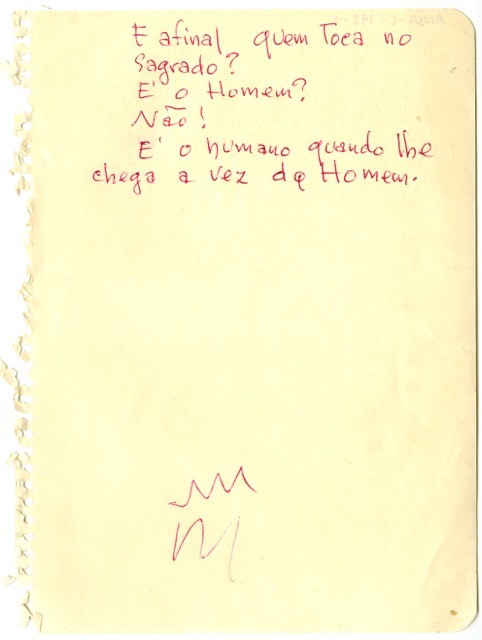 E afinal quem Toca no
Sagrado?
E' o Homem?
Não!
E' o humano quando lhe
chega a vez de Homem.